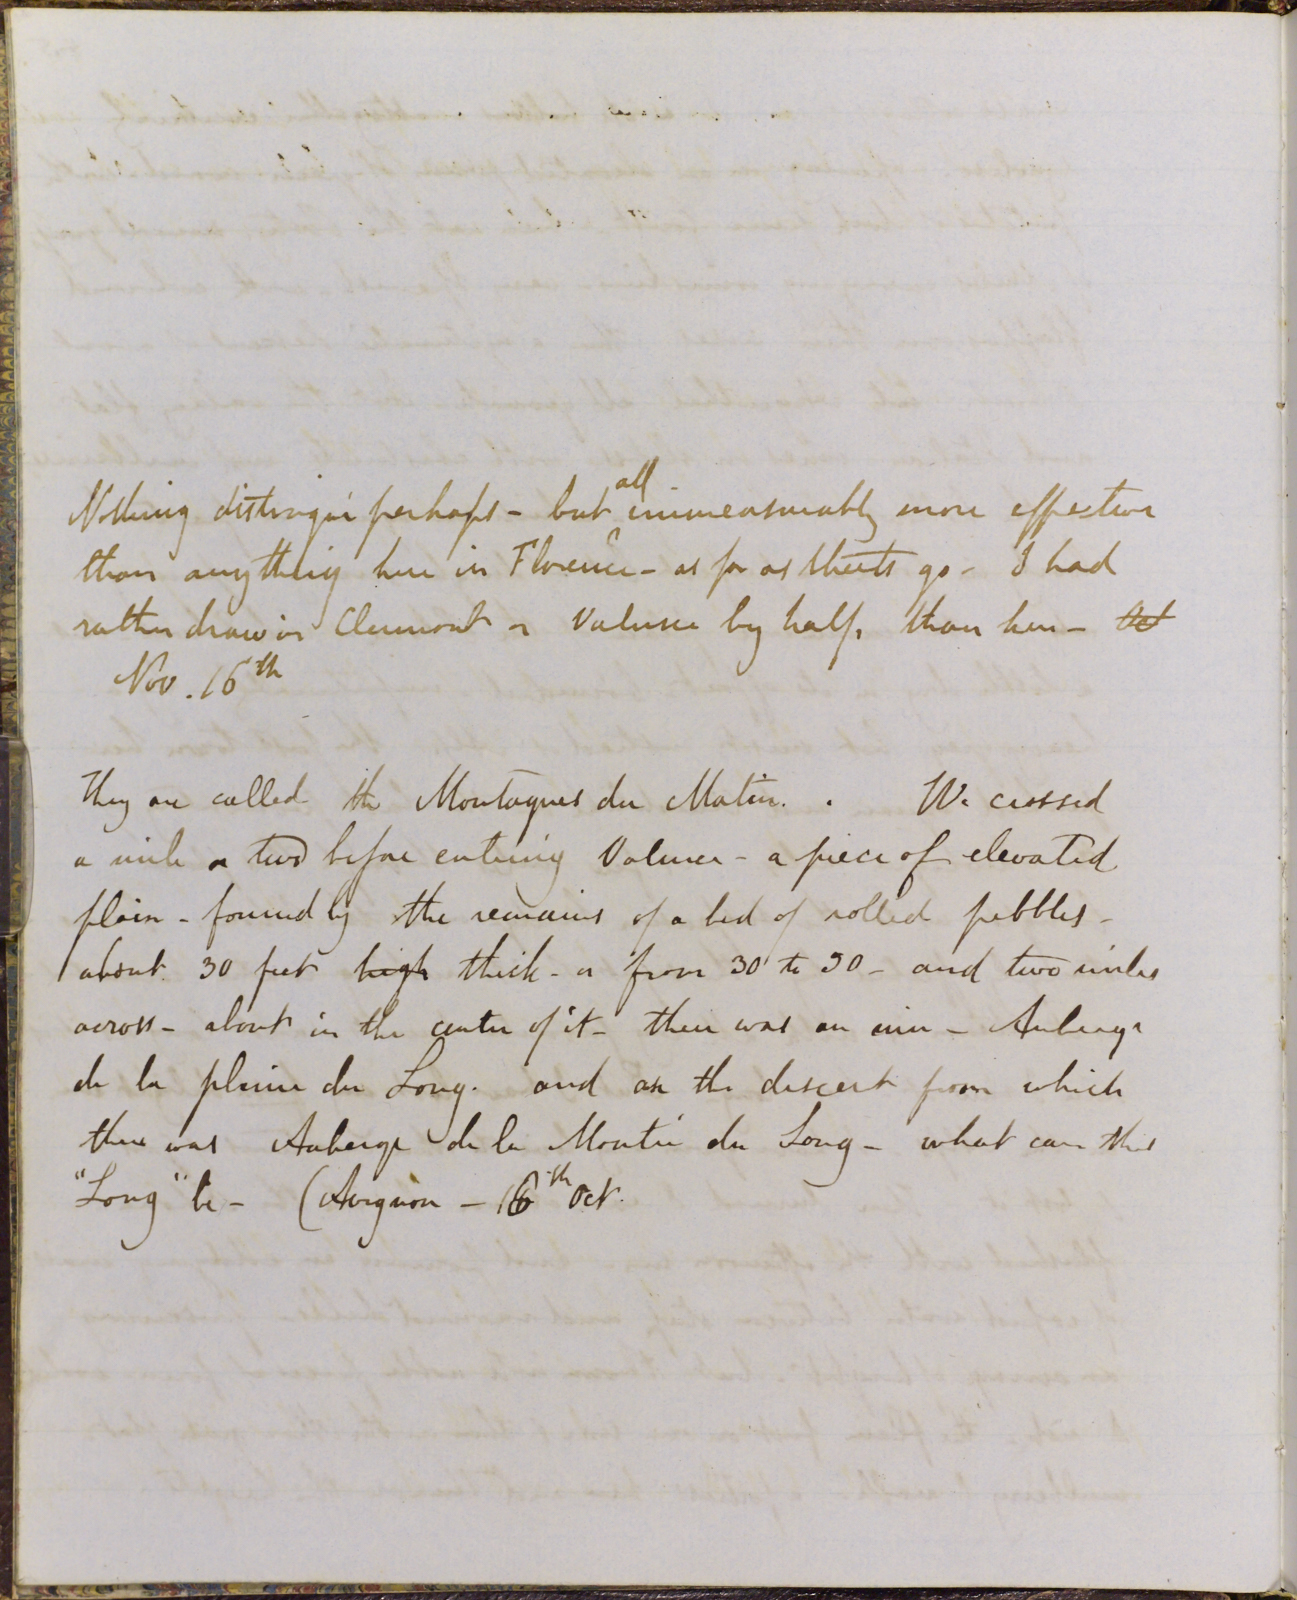 Nothing distingué perhaps - but all immeasurably more effective
than anything here in Florence - as far as streets go - I had
rather draw in Clermont or Valence by half, than here - Oct
Nov. 16th
They are called the Montagnes du Matin. . We crossed
a mile or two before entering Valence - a piece of elevated
plain - formed by the remains of a bed of rolled pebbles -
about 30 feet high thick - or from 30 to 50 - and two miles
across - about in the center of it - there was an inn - Auberge
de la plaine du Long. and on the descent from which
there was Auberge de la Montée du Long - what can this
"Long" be - (Avignon - 16th Oct.